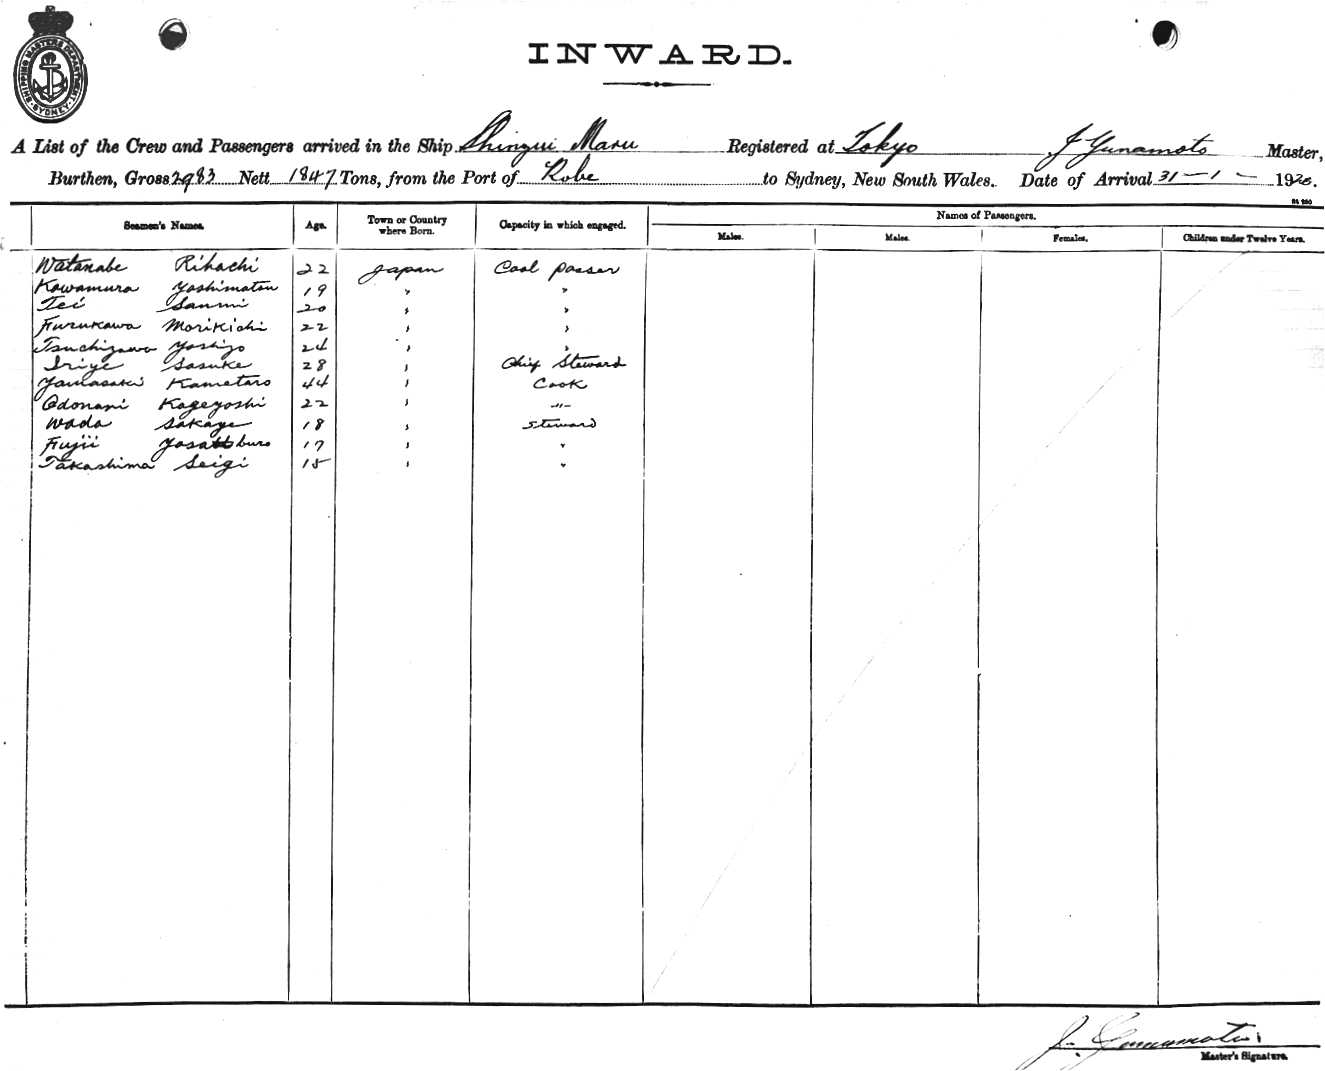 SHIPPING MASTERS DEPARTMENT SYDNEY
INWARD.
A List of the Crew and Passengers arrived in the Ship Shinzui Maru Registered at Tokyo J Yunamoto Master,
Burthen, Gross 2983 Nett 1847 Tons, from the Port of Kobe to Sydney, New South Wales. Date of Arrival 31-1-1920.
Names of Passengers.
Seamen's Names. Age. Town or Country where Born. Capacity in which engaged. Males. Males. Females. Children under Twelve Years.
Watanabe Rihachi 22 Japan Coal passer
Kawamura Yoshimatsu 19 " "
Tei Sanmi 20 " "
Furukawa Morikichi 22 " "
Tsuchizawa Yoshizo 24 " "
Iriye Sasuke 28 " Chief Steward
Yamasaki Kametaro 44 " Cook
Odonani Kageyoshi 22 " -"-
Wada Sakaye 18 " Steward
Fujii Yosaburo 17 " "
Takashima Seigi 15 " "
Master's Signature.